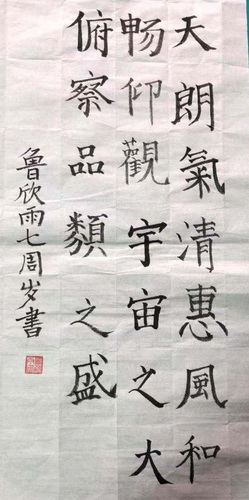 天朗氣清惠風和
畅仰觀宇宙之大
俯察品類之盛
魯欣雨七周岁書